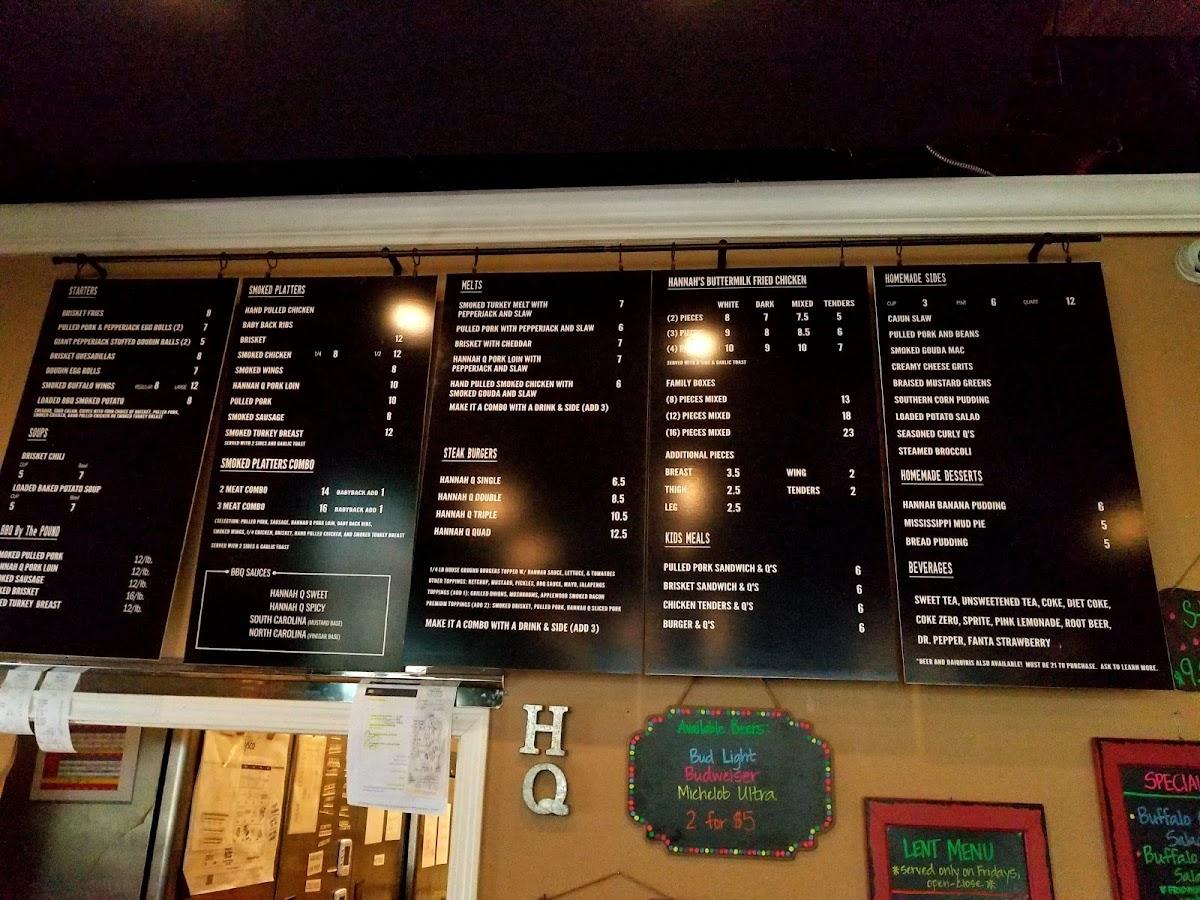 STARTERS
BRISKET FRIES 8
PULLED PORK & PEPPERJACK EGG ROLLS (2) 7
GIANT PEPPERJACK STUFFED BOUDIN BALLS (2) 5
BRISKET QUESADILLAS 8
BOUDIN EGG ROLLS 7
SMOKED BUFFALO WINGS REGULAR 8 LARGE 12
LOADED BBQ SMOKED POTATO 8
SOUPS
BRISKET CHILI
CUP Bowl
5 7
LOADED BAKED POTATO SOUP
CUP Bowl
5 7
BBQ By The POUND
SMOKED PULLED PORK 12/lb.
HANNAH Q PORK LOIN 12/lb.
SMOKED SAUSAGE 12/lb.
BRISKET 16/lb.
TURKEY BREAST 12/lb.
SMOKED PLATTERS
HAND PULLED CHICKEN
BABY BACK RIBS
BRISKET 12
SMOKED CHICKEN 1/4 8 1/2 12
SMOKED WINGS 8
HANNAH Q PORK LOIN 10
PULLED PORK 10
SMOKED SAUSAGE 8
SMOKED TURKEY BREAST 12
SERVED WITH 2 SIDES AND GARLIC TOAST
SMOKED PLATTERS COMBO
2 MEAT COMBO 14 BABYBACK ADD 1
3 MEAT COMBO 16 BABYBACK ADD 1
(SELECTION: PULLED PORK, SAUSAGE, HANNAH Q PORK LOIN, BABY BACK RIBS,
SMOKED WINGS, 1/4 CHICKEN, BRISKET, HAND PULLED CHICKEN, AND SMOKED TURKEY BREAST
SERVED WITH 2 SIDES & GARLIC TOAST
BBQ SAUCES
HANNAH Q SWEET
HANNAH Q SPICY
SOUTH CAROLINA (MUSTARD BASE)
NORTH CAROLINA (VINEGAR BASE)
MELTS
SMOKED TURKEY MELT WITH 7
PEPPERJACK AND SLAW
PULLED PORK WITH PEPPERJACK AND SLAW 6
BRISKET WITH CHEDDAR 7
HANNAH Q PORK LOIN WITH 7
PEPPERJACK AND SLAW
HAND PULLED SMOKED CHICKEN WITH 6
SMOKED GOUDA AND SLAW
MAKE IT A COMBO WITH A DRINK & SIDE (ADD 3)
STEAK BURGERS
HANNAH Q SINGLE 6.5
HANNAH Q DOUBLE 8.5
HANNAH Q TRIPLE 10.5
HANNAH Q QUAD 12.5
1/4 LB HOUSE GROUND BURGERS TOPPED W/ HANNAH SAUCE, LETTUCE, & TOMATOES
OTHER TOPPINGS: KETCHUP, MUSTARD, PICKLES, BBQ SAUCE, MAYO, JALAPENOS
TOPPINGS (ADD 1): GRILLED ONIONS, MUSHROOMS, APPLEWOOD SMOKED BACON
PREMIUM TOPPINGS (ADD 2): SMOKED BRISKET, PULLED PORK, HANNAH Q SLICED PORK
MAKE IT A COMBO WITH A DRINK & SIDE (ADD 3)
HANNAH'S BUTTERMILK FRIED CHICKEN
WHITE DARK MIXED TENDERS
(2) PIECES 8 7 7.5 5
(3) 9 8 8.5 6
(4) 10 9 10 7
SERVED WITH A SIDE & GARLIC TOAST
FAMILY BOXES
(8) PIECES MIXED 13
(12) PIECES MIXED 18
(16) PIECES MIXED 23
ADDITIONAL PIECES
BREAST 3.5 WING 2
THIGH 2.5 TENDERS 2
LEG 2.5
KIDS MEALS
PULLED PORK SANDWICH & Q'S 6
BRISKET SANDWICH & Q'S 6
CHICKEN TENDERS & Q'S 6
BURGER & Q'S 6
HOMEMADE SIDES
CUP 3 PINT 6 QUART 12
CAJUN SLAW
PULLED PORK AND BEANS
SMOKED GOUDA MAC
CREAMY CHEESE GRITS
BRAISED MUSTARD GREENS
SOUTHERN CORN PUDDING
LOADED POTATO SALAD
SEASONED CURLY Q'S
STEAMED BROCCOLI
HOMEMADE DESSERTS
HANNAH BANANA PUDDING 6
MISSISSIPPI MUD PIE 5
BREAD PUDDING 5
BEVERAGES
SWEET TEA, UNSWEETENED TEA, COKE, DIET COKE,
COKE ZERO, SPRITE, PINK LEMONADE, ROOT BEER,
DR. PEPPER, FANTA STRAWBERRY
*BEER AND DAIQUIRIS ALSO AVAILABLE! MUST BE 21 TO PURCHASE. ASK TO LEARN MORE.
H
Q
Available Beers:
Bud Light
Budweiser
Michelob Ultra
2 for $5
LENT MENU
*served only on Fridays,
open-close*
SPECIA
Buffalo
Sala
Buffalo
Sala